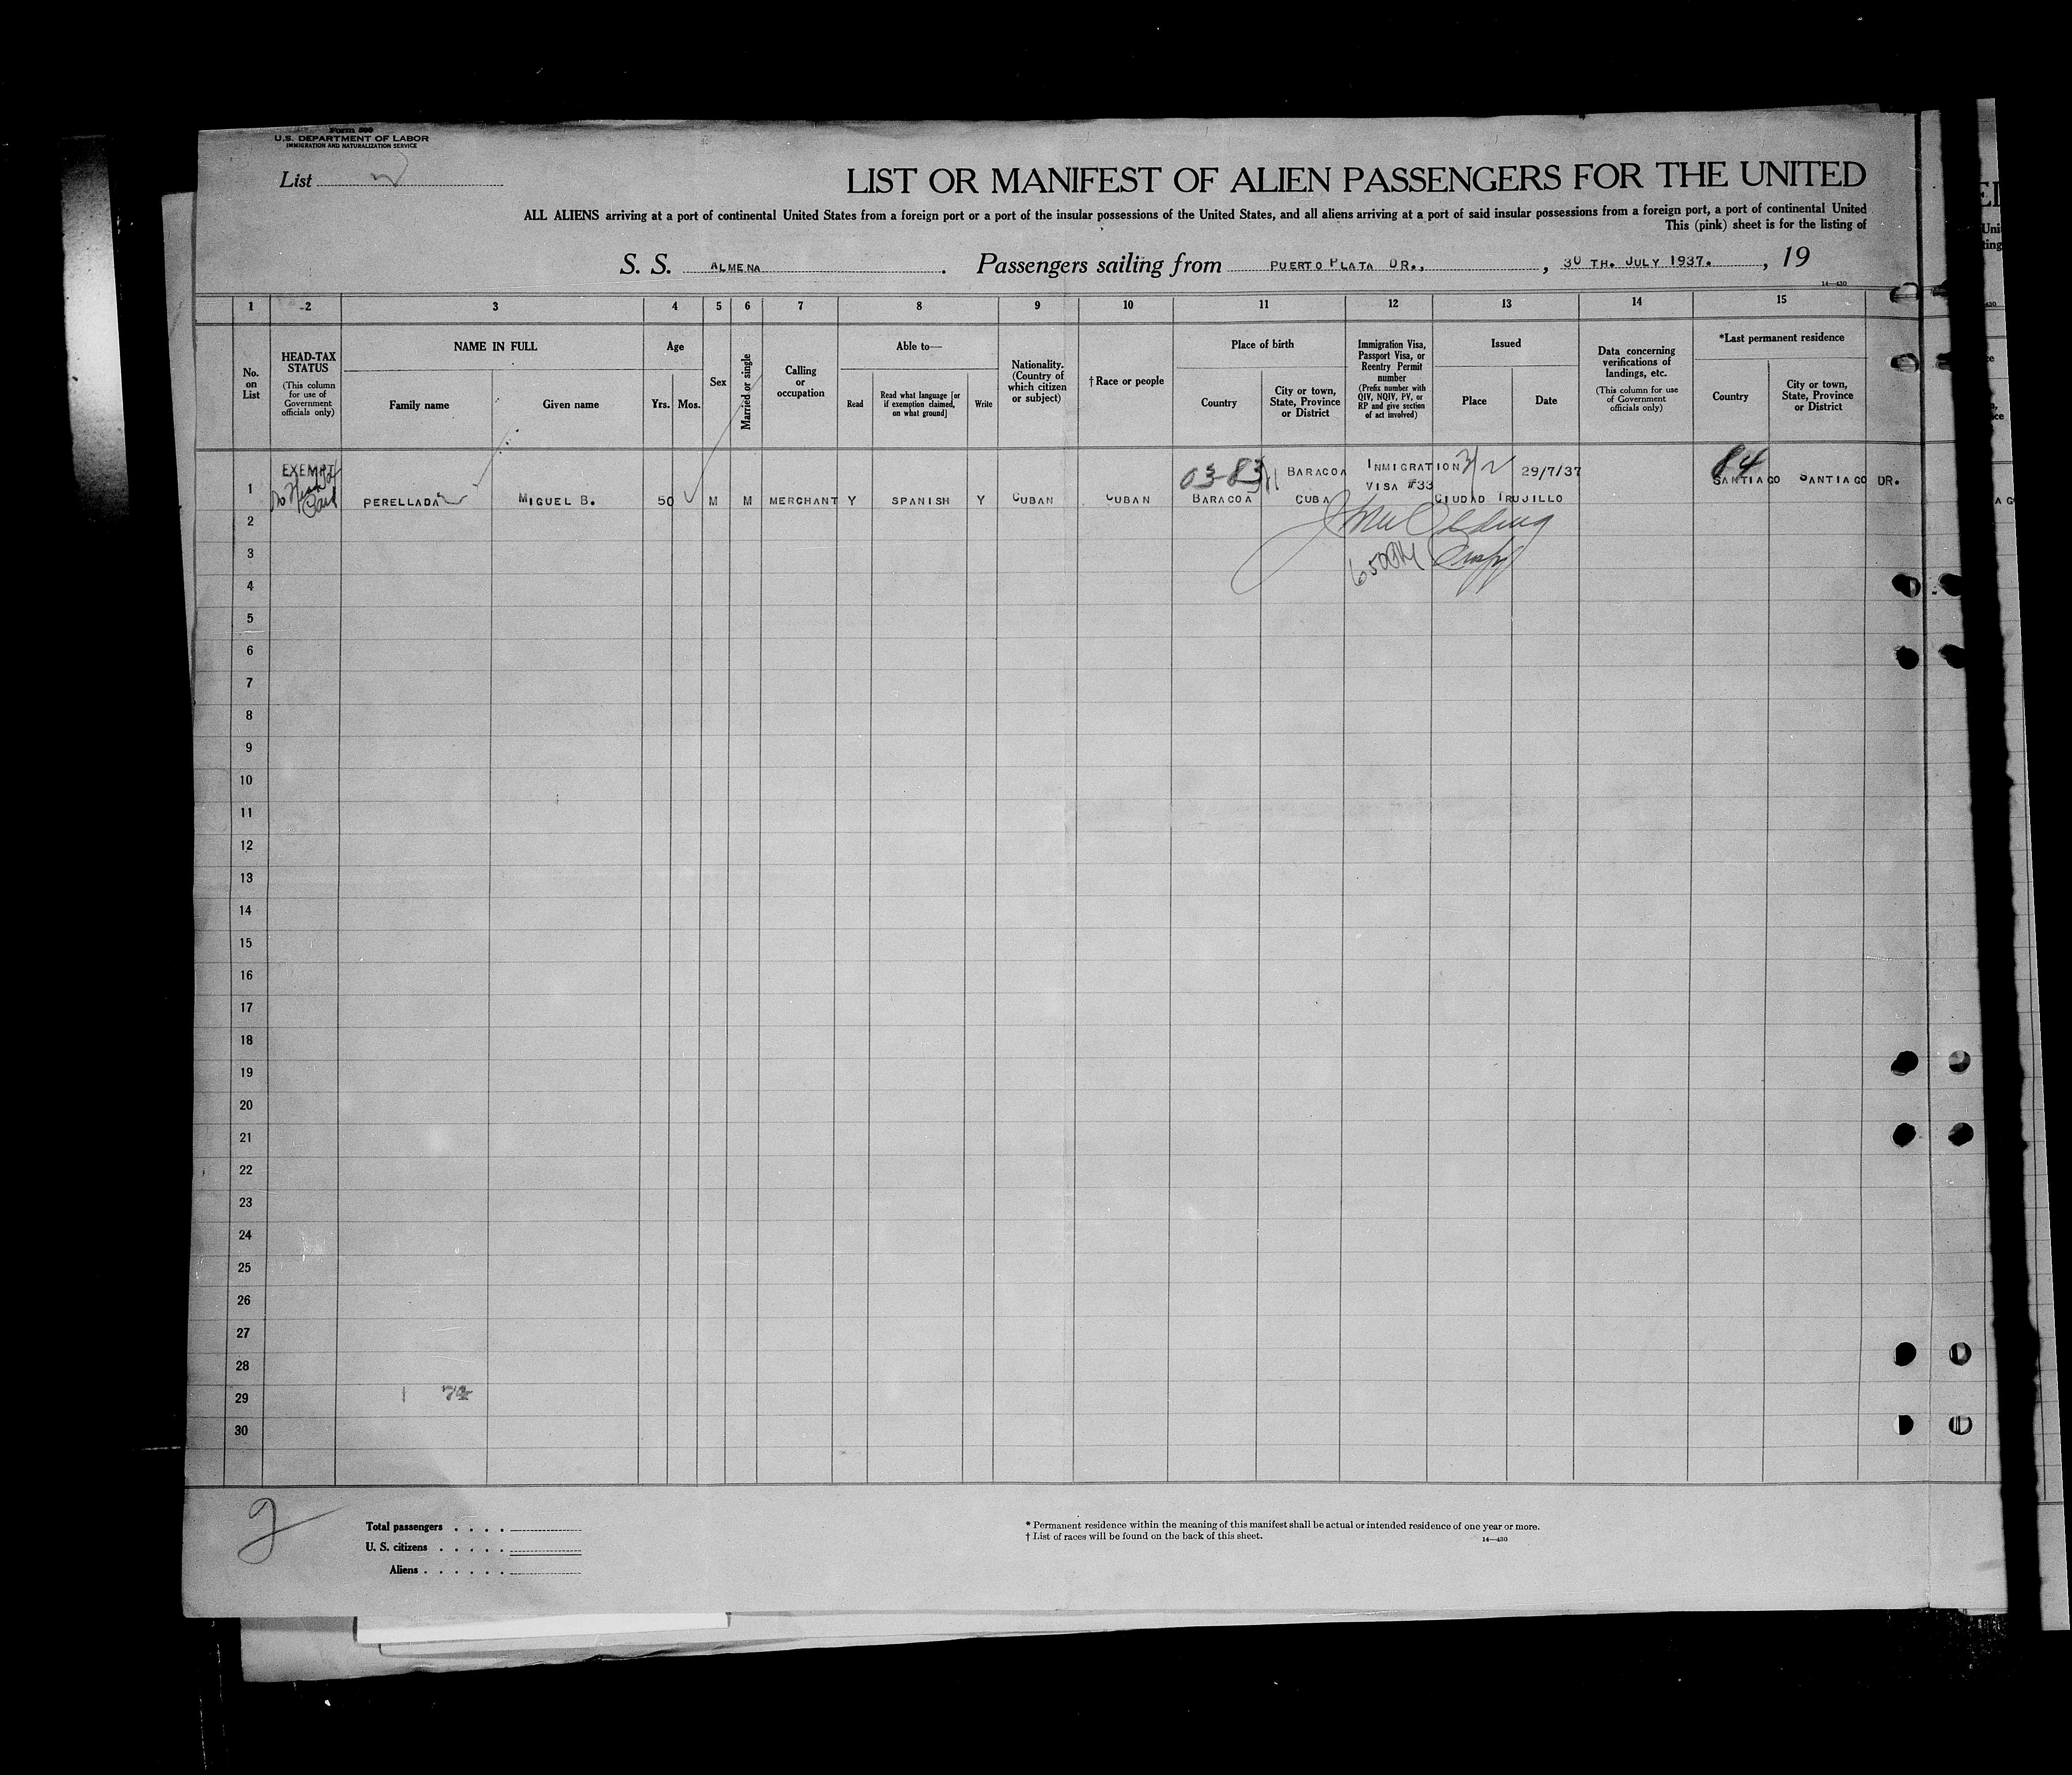 Form 500
U.S. DEPARTMENT OF LABOR
IMMIGRATION AND NATURALIZATION SERVICE
List
LIST OR MANIFEST OF ALIEN PASSENGERS FOR THE UNITED
ALL ALIENS arriving at a port of continental United States from a foreign port or a port of the insular possessions of the United States, and all aliens arriving at a port of said insular possessions from a foreign port, a port of continental United
This (pink) sheet is for the listing of
S. S. ALMENA. Passengers sailing from PUERTO PLATA DR., , 30 TH. JULY 1937. , 19
14—430
1 2 3 4 5 6 7 8 9 10 11 12 13 14 15
No. on List
HEAD-TAX STATUS
(This column for use of Government officials only)
NAME IN FULL
Family name
Given name
Age
Yrs. Mos.
Sex
Married or single
Calling or occupation
Able to—
Read
Read what language [or if exemption claimed, on what ground]
Write
Nationality. (Country of which citizen or subject)
† Race or people
Place of birth
Country
City or town, State, Province or District
Immigration Visa, Passport Visa, or Reentry Permit number
(Prefix number with QIV, NQIV, PV, or RP and give section of act involved)
Issued
Place
Date
Data concerning verifications of landings, etc.
(This column for use of Government officials only)
*Last permanent residence
Country
City or town, State, Province or District
EXEMPT 03-83 BARACOA INMIGRATION 29/7/37 84
VISA #33
1 PERELLADA MIGUEL B. 50 M M MERCHANT Y SPANISH Y CUBAN CUBAN BARACOA CUBA CIUDAD TRUJILLO SANTIAGO SANTIAGO DR.
2
3
4
5
6
7
8
9
10
11
12
13
14
15
16
17
18
19
20
21
22
23
24
25
26
27
28
29 74
30
2
Total passengers . . . .
U. S. citizens . . . . .
Aliens . . . . . .
* Permanent residence within the meaning of this manifest shall be actual or intended residence of one year or more.
† List of races will be found on the back of this sheet.
14—430